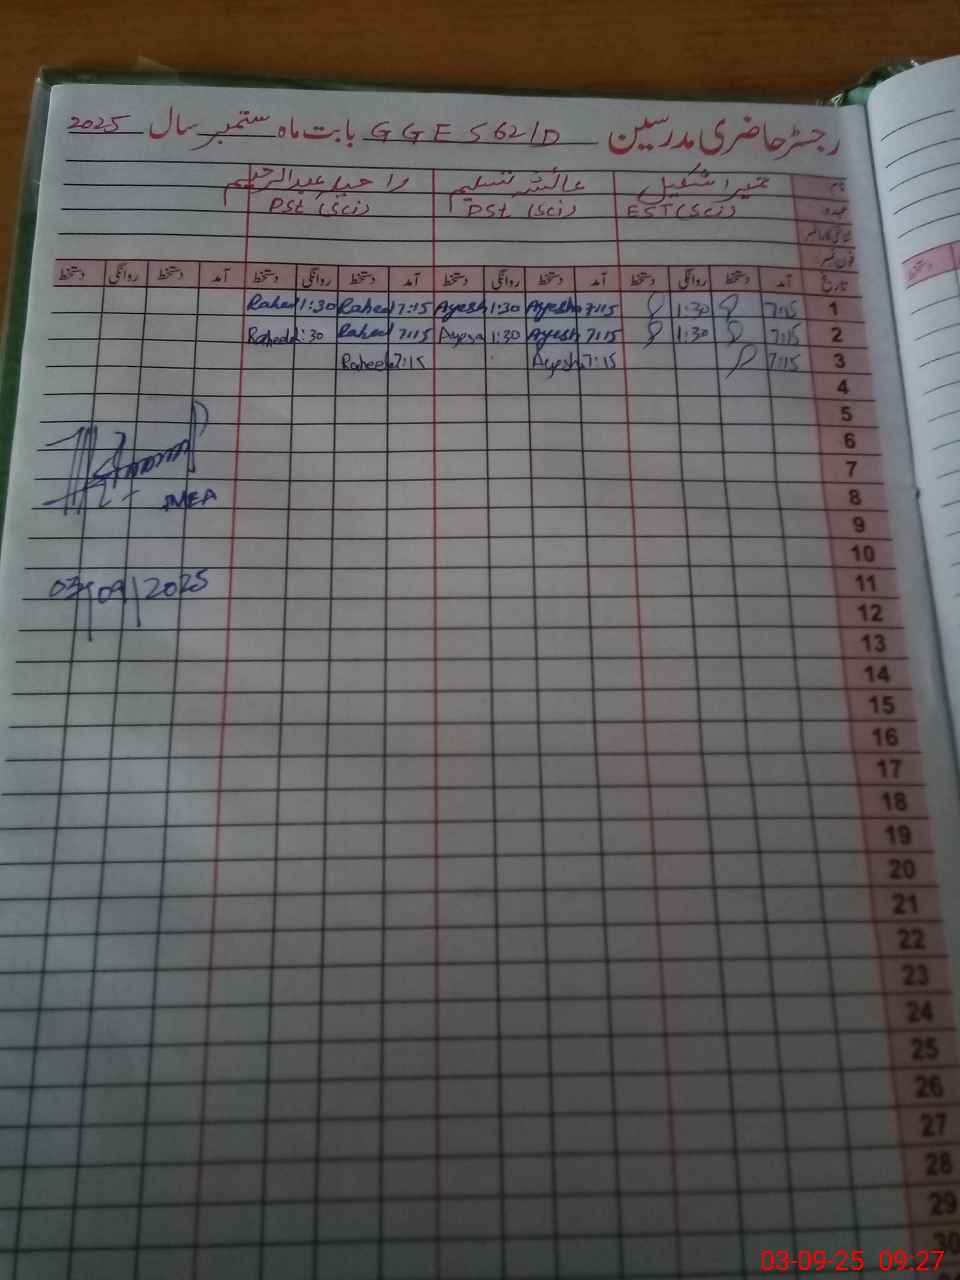 رجسٹر حاضری مدرسین GGES 62/D بابت ماہ ستمبر سال 2025
نام شکیل عائشہ تسلیم عبدالرحیم
عہدہ EST (Sci) PST (Sci) PST (Sci)
فون نمبر
تاریخ آمد دستخط روانگی دستخط آمد دستخط روانگی دستخط آمد دستخط روانگی دستخط آمد دستخط روانگی دستخط
1 7:15 1:30 7:15 Ayesha 1:30 Ayesha 7:15 Raheel 1:30 Raheel
2 7:15 1:30 7:15 Ayesha 1:30 Ayesha 7:15 Raheel 1:30 Raheela
3 7:15 7:15 Ayesha 7:15 Raheela
4
5
6
7
8 MEA
9
10
11 03/09/2025
12
13
14
15
16
17
18
19
20
21
22
23
24
25
26
27
28
29
30
دستخط
03-09-25 09:27